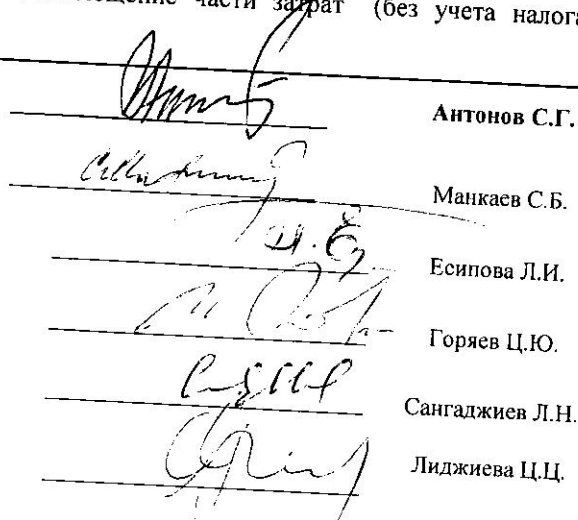 части затрат (без учета налога
Антонов С.Г.
Манкаев С.Б.
Есипова Л.И.
Горяев Ц.Ю.
Сангаджиев Л.Н.
Лиджиева Ц.Ц.